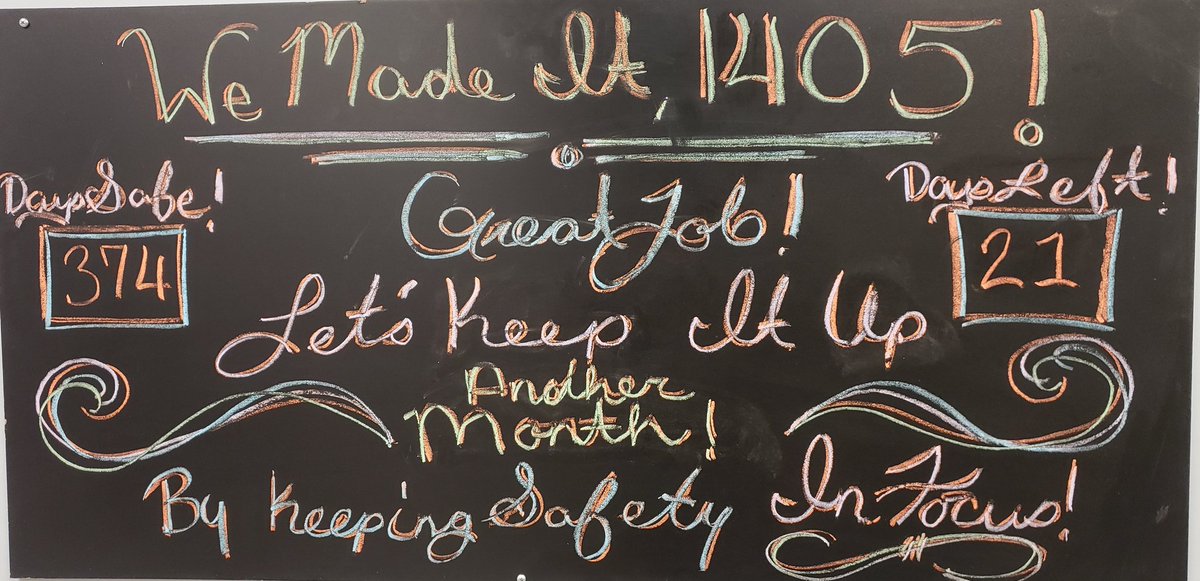 We Made It, 1405!
Days Safe!
374
Great Job!
Days Left!
21
Let's Keep It Up
Another
Month!
By Keeping Safety In Focus!